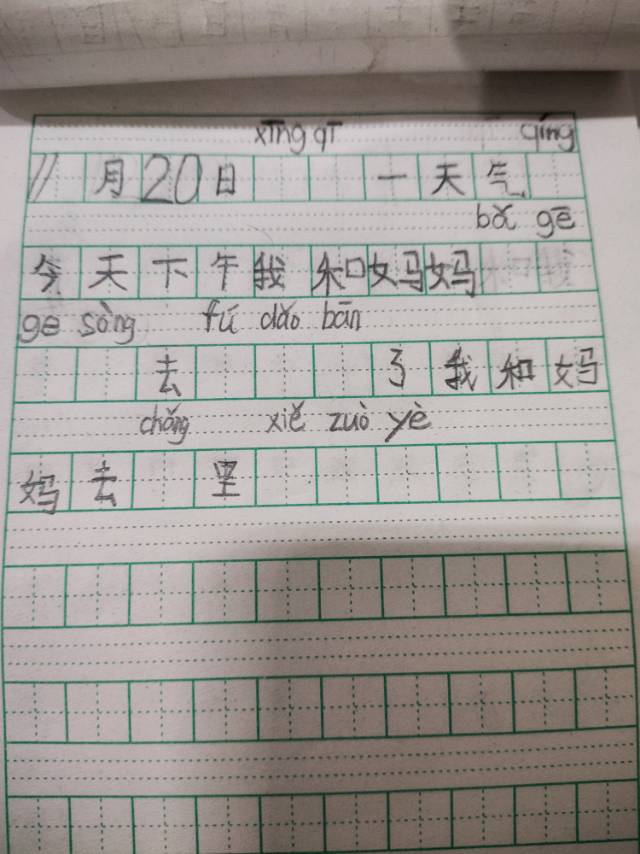 xīng qī qíng
11月20日 一天气
bǎ gē
今天下午我和妈妈
ge sòng fǔ dǎo bān
去 了我和妈
chǎng xiě zuò yè
妈去 里